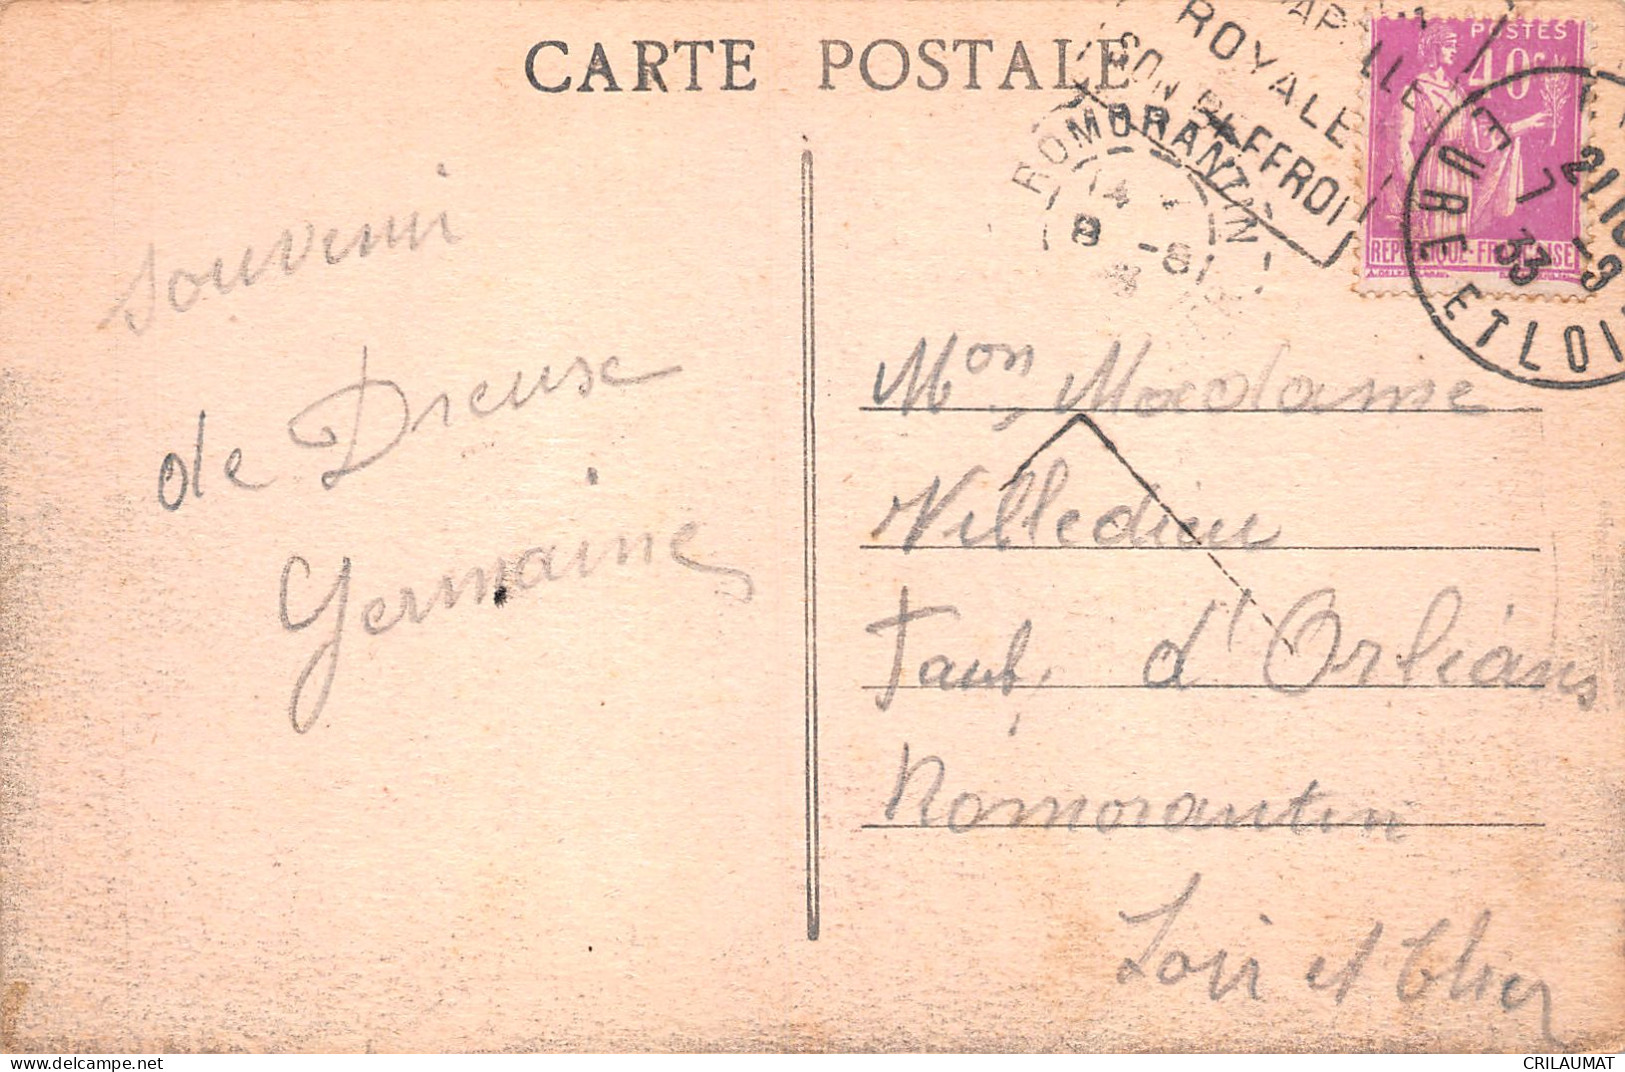 CARTE POSTALE
ROYALE
SON BEFFROI
ROMORANTIN
14
8 -8
POSTES
40 c
REPUBLIQUE-FRANÇAISE
21 10
7 -9
33
EURE ET LOIR
souvenir
de Dreuse
Germaine
Mon Madame
Villedieu
Faub. d'Orléans
Romorantin
Loir et Cher
CRILAUMAT